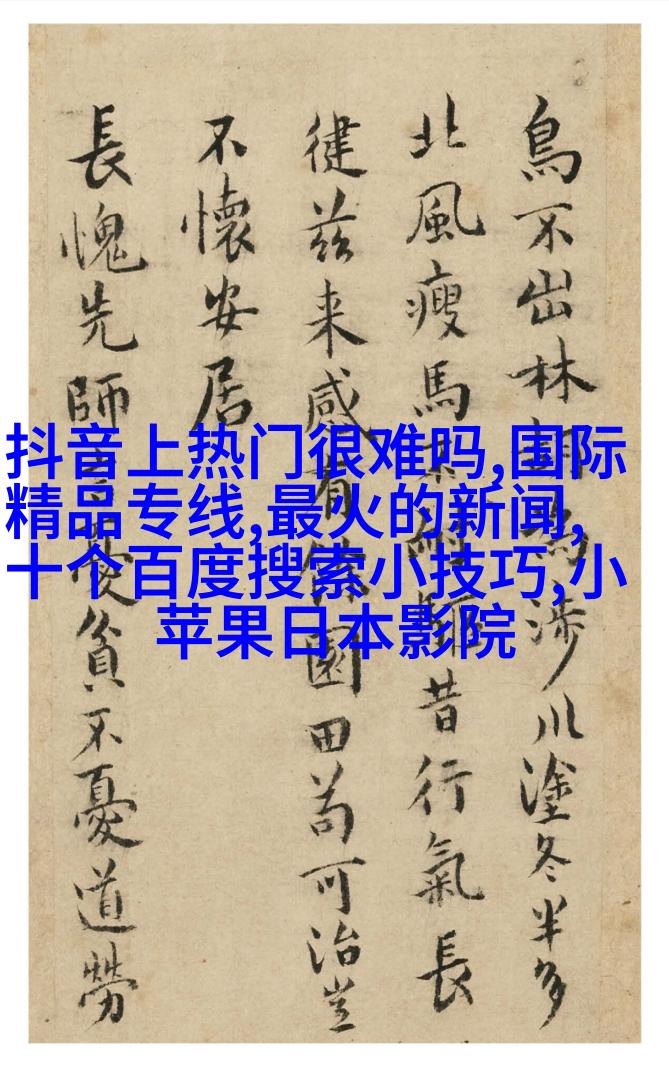 鳥不出林胡為涉川塗冬半多
北風瘦馬昔行氣長
健茲来感有園田苟可治豈
不懷安居
長愧先師憂貧不憂道勞
抖音上热门很难吗,国际
精品专线,最火的新闻,
十个百度搜索小技巧,小
苹果日本影院